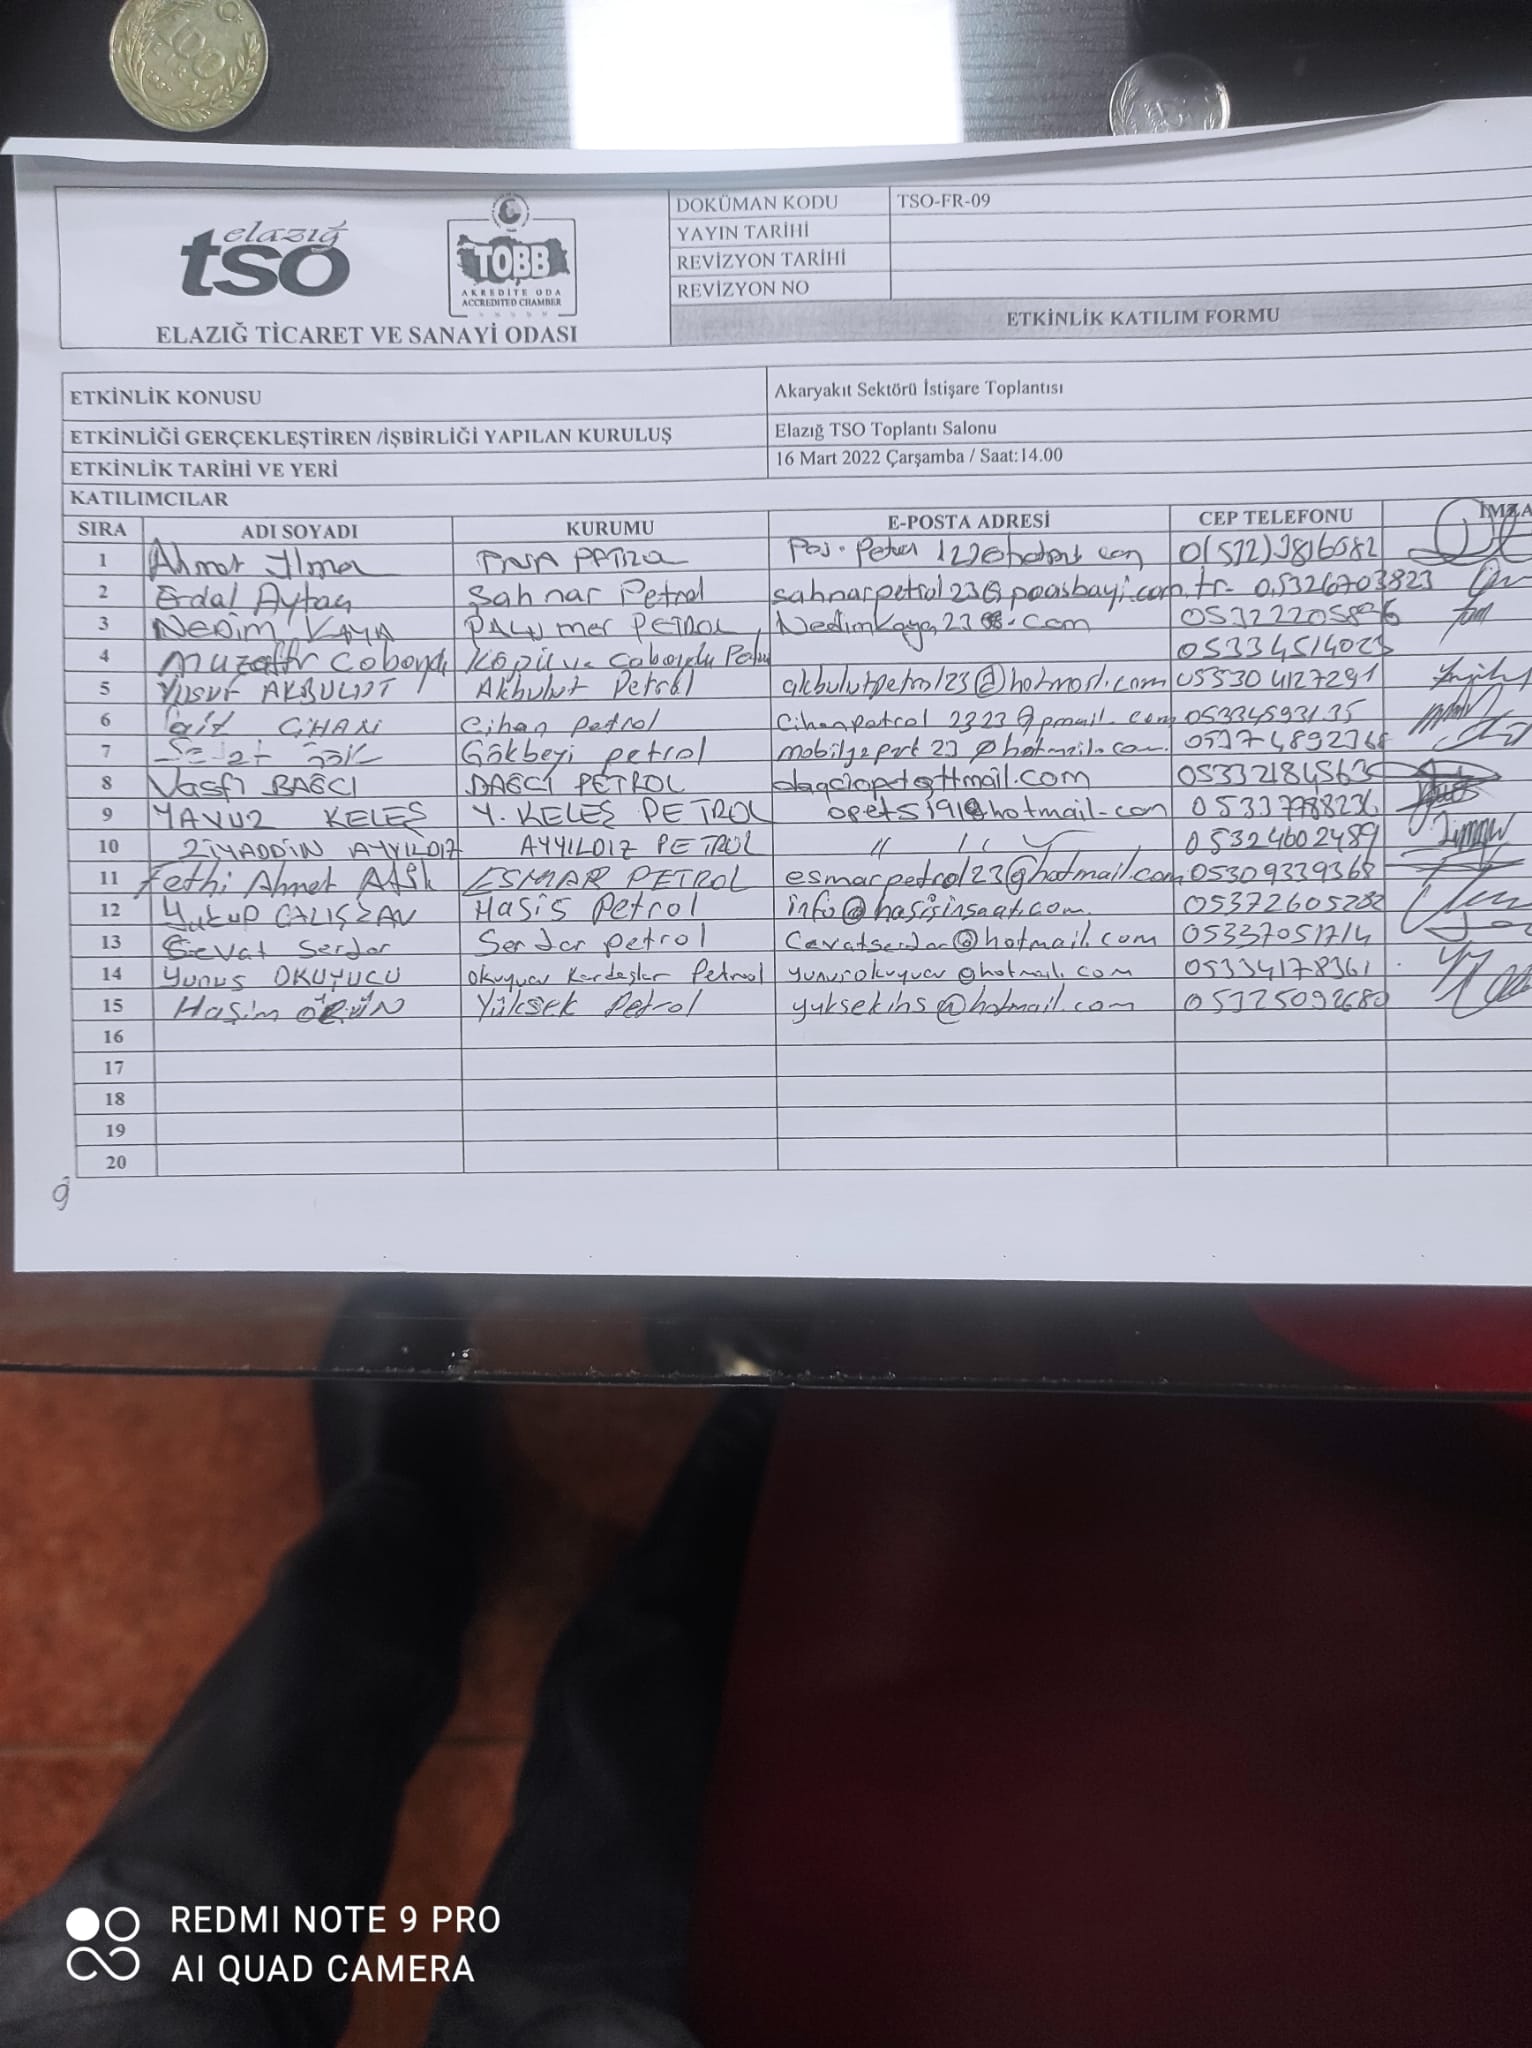 100
elazığ
tso
TOBB
AKREDİTE ODA
ACCREDITED CHAMBER
ELAZIĞ TİCARET VE SANAYİ ODASI
DOKÜMAN KODU TSO-FR-09
YAYIN TARİHİ
REVİZYON TARİHİ
REVİZYON NO
ETKİNLİK KATILIM FORMU
ETKİNLİK KONUSU Akaryakıt Sektörü İstişare Toplantısı
ETKİNLİĞİ GERÇEKLEŞTİREN /İŞBİRLİĞİ YAPILAN KURULUŞ Elazığ TSO Toplantı Salonu
ETKİNLİK TARİHİ VE YERİ 16 Mart 2022 Çarşamba / Saat:14.00
KATILIMCILAR
SIRA ADI SOYADI KURUMU E-POSTA ADRESİ CEP TELEFONU İMZA
1 Ahmet
2 Erdal Aytaç Şahnar Petrol sahnarpetrol23@poasbayi.com.tr- 05326703823
3 Nedim KAYA PETROL
4 Petrol
5 Yusuf AKBULUT Akbulut Petrol akbulutpetrol23@hotmail.com 053304127291
6 CİHAN Cihan petrol 05334593135
7 Gökbeyi petrol
8 Vasfi BAĞCI BAĞCI PETROL 05332184563
9 YAVUZ KELEŞ Y. KELEŞ PETROL opet5191@hotmail-com 05337988236
10 ZİYADDİN AYYILDIZ AYYILDIZ PETROL " " 05324602489
11 Fethi Ahmet ESMAR PETROL esmarpetrol23@hotmail.com 05309339368
12 Yakup ÇALIŞKAN Hasiş Petrol info@hasisinsaat.com. 05372605282
13 Cevat Serdar Serdar petrol Cevatserdar@hotmail.com 05337051714
14 Yunus OKUYUCU Okuyucu Kardeşler Petrol yunusokuyucu@hotmail.com 05334178361
15 Haşim Yüksek Petrol yuksekins@hotmail.com 05325092680
16
17
18
19
20
REDMI NOTE 9 PRO
AI QUAD CAMERA